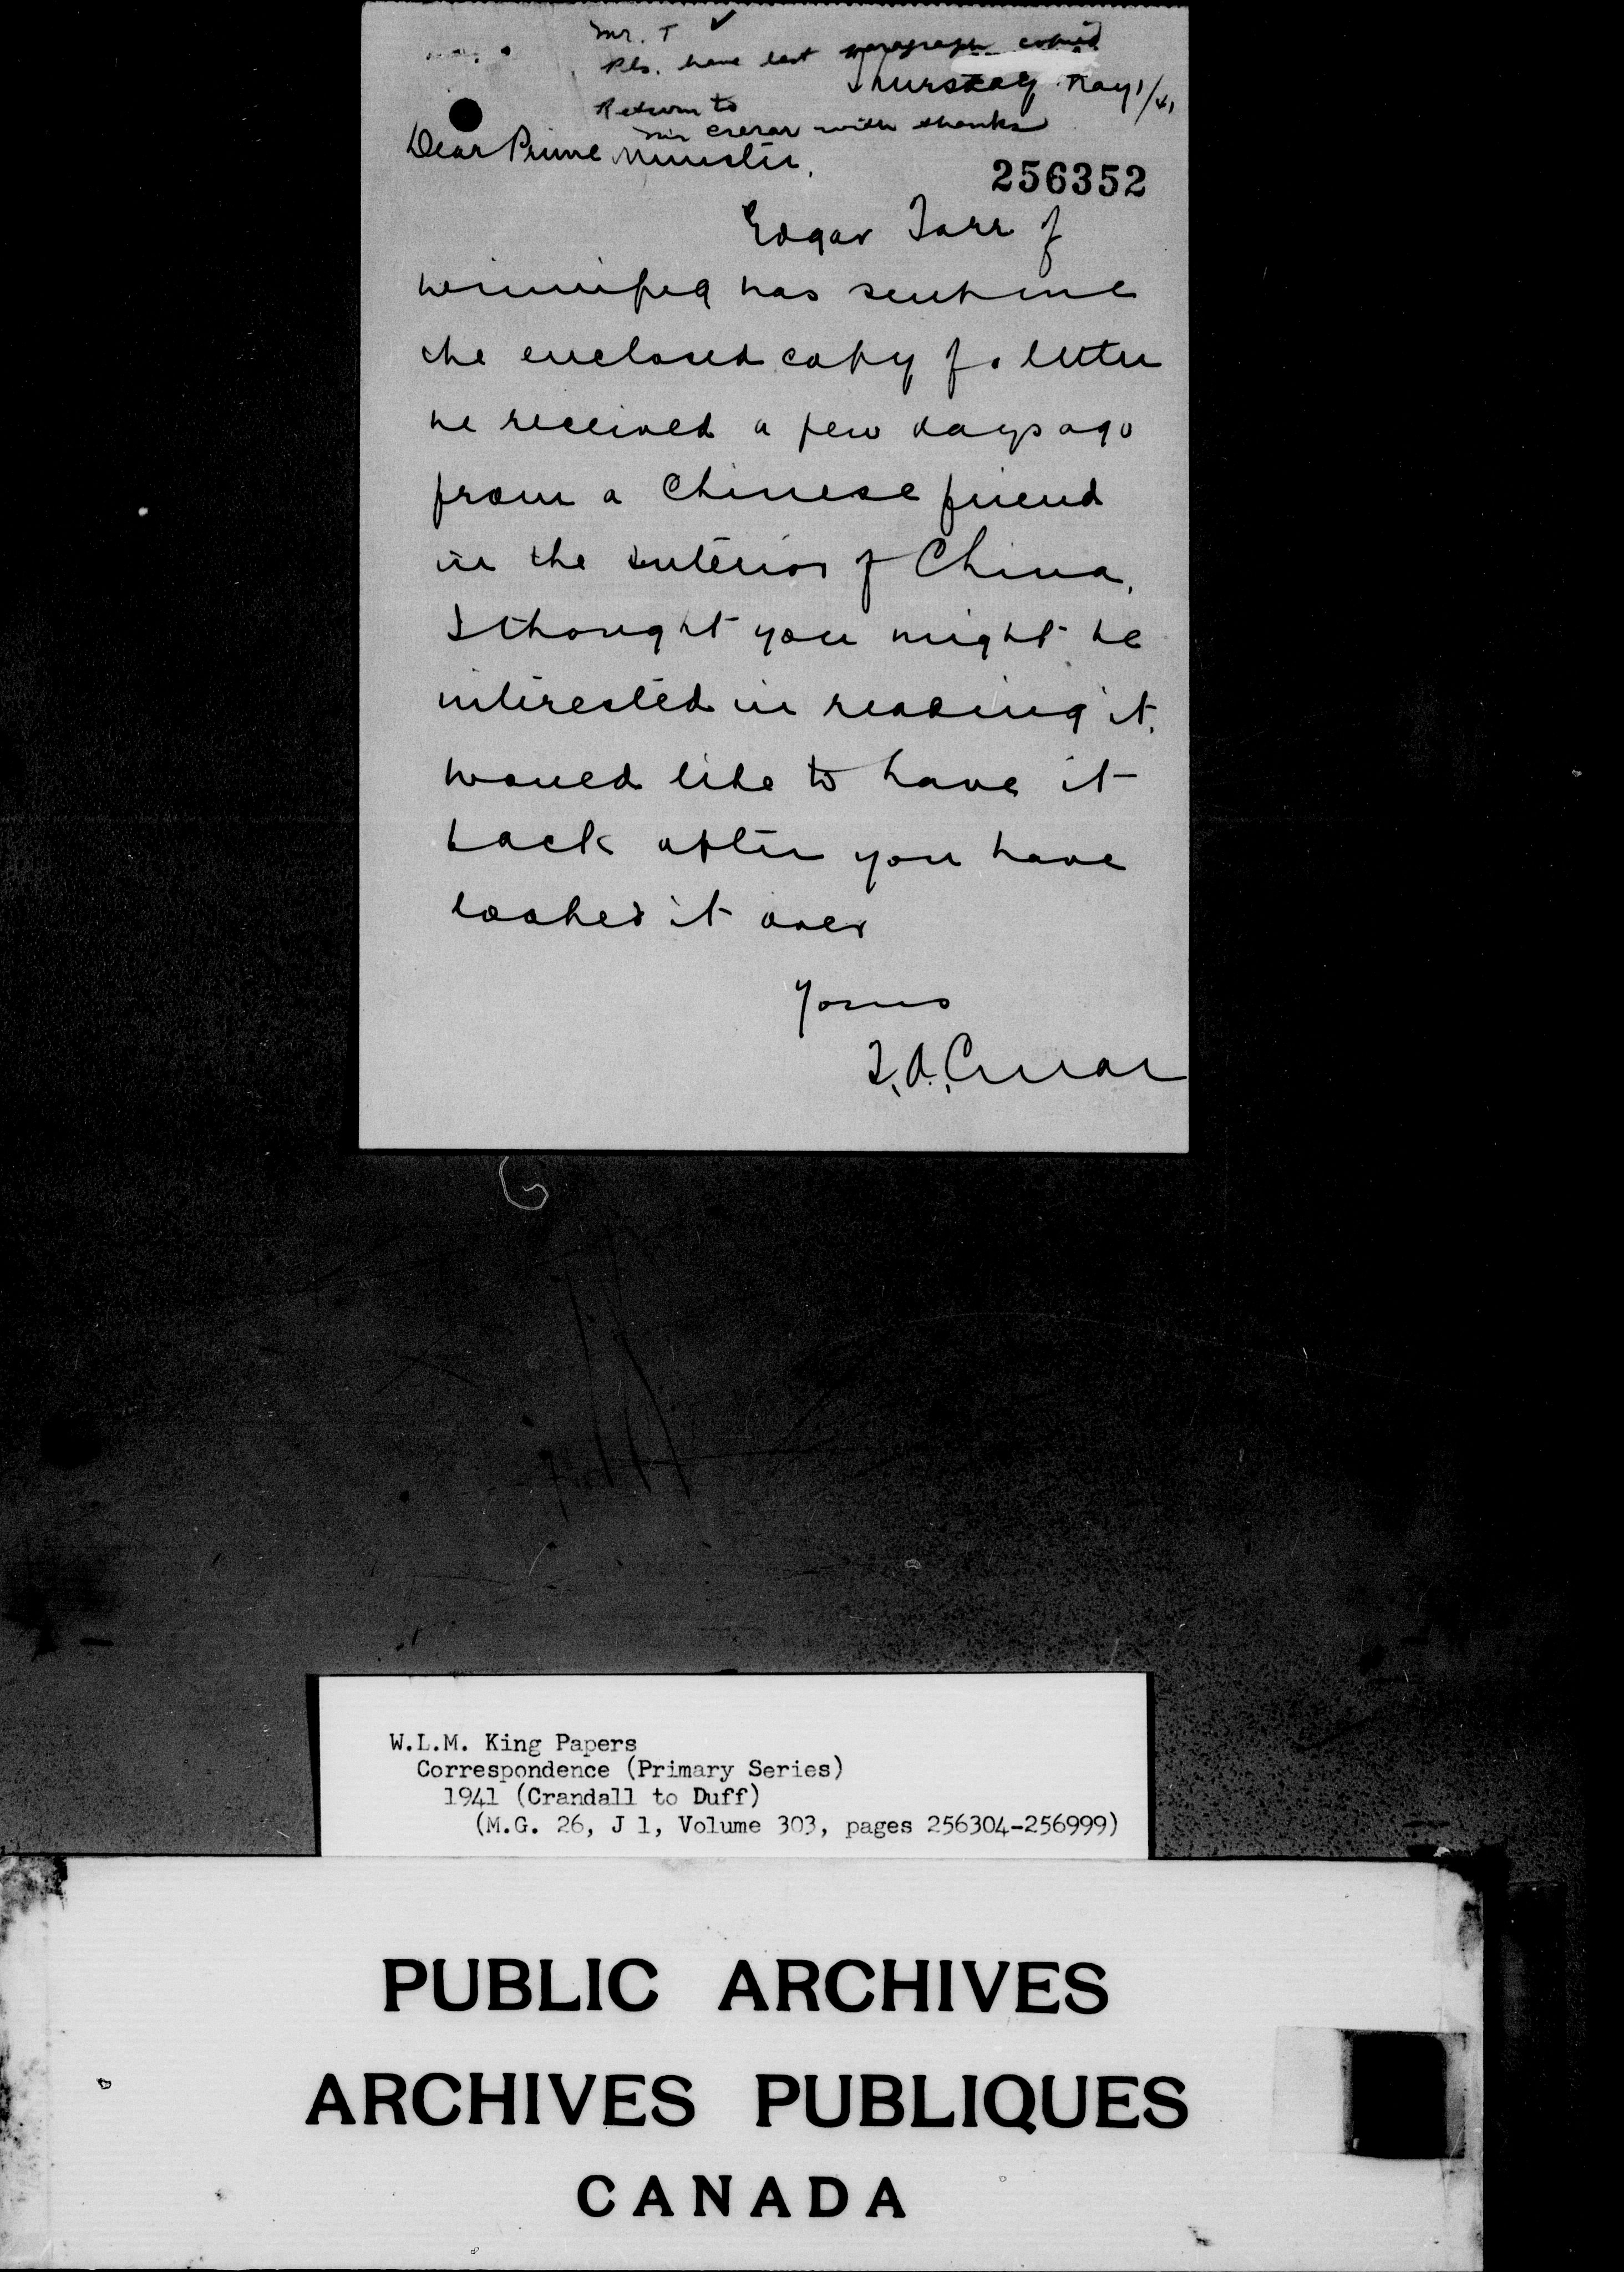 Mr. T ✓
Pls. have last paragraph copied
Thursday May 1/41
Return to
Mr Crerar with thanks
Dear Prime Minister,
256352
Edgar Tarr of
Winnipeg has sent me
the enclosed copy of a letter
he received a few days ago
from a Chinese friend
in the interior of China.
I thought you might be
interested in reading it.
Would like to have it
back after you have
looked it over
Yours
T.A. Crerar
W.L.M. King Papers
Correspondence (Primary Series)
1941 (Crandall to Duff)
(M.G. 26, J 1, Volume 303, pages 256304-256999)
PUBLIC ARCHIVES
ARCHIVES PUBLIQUES
CANADA